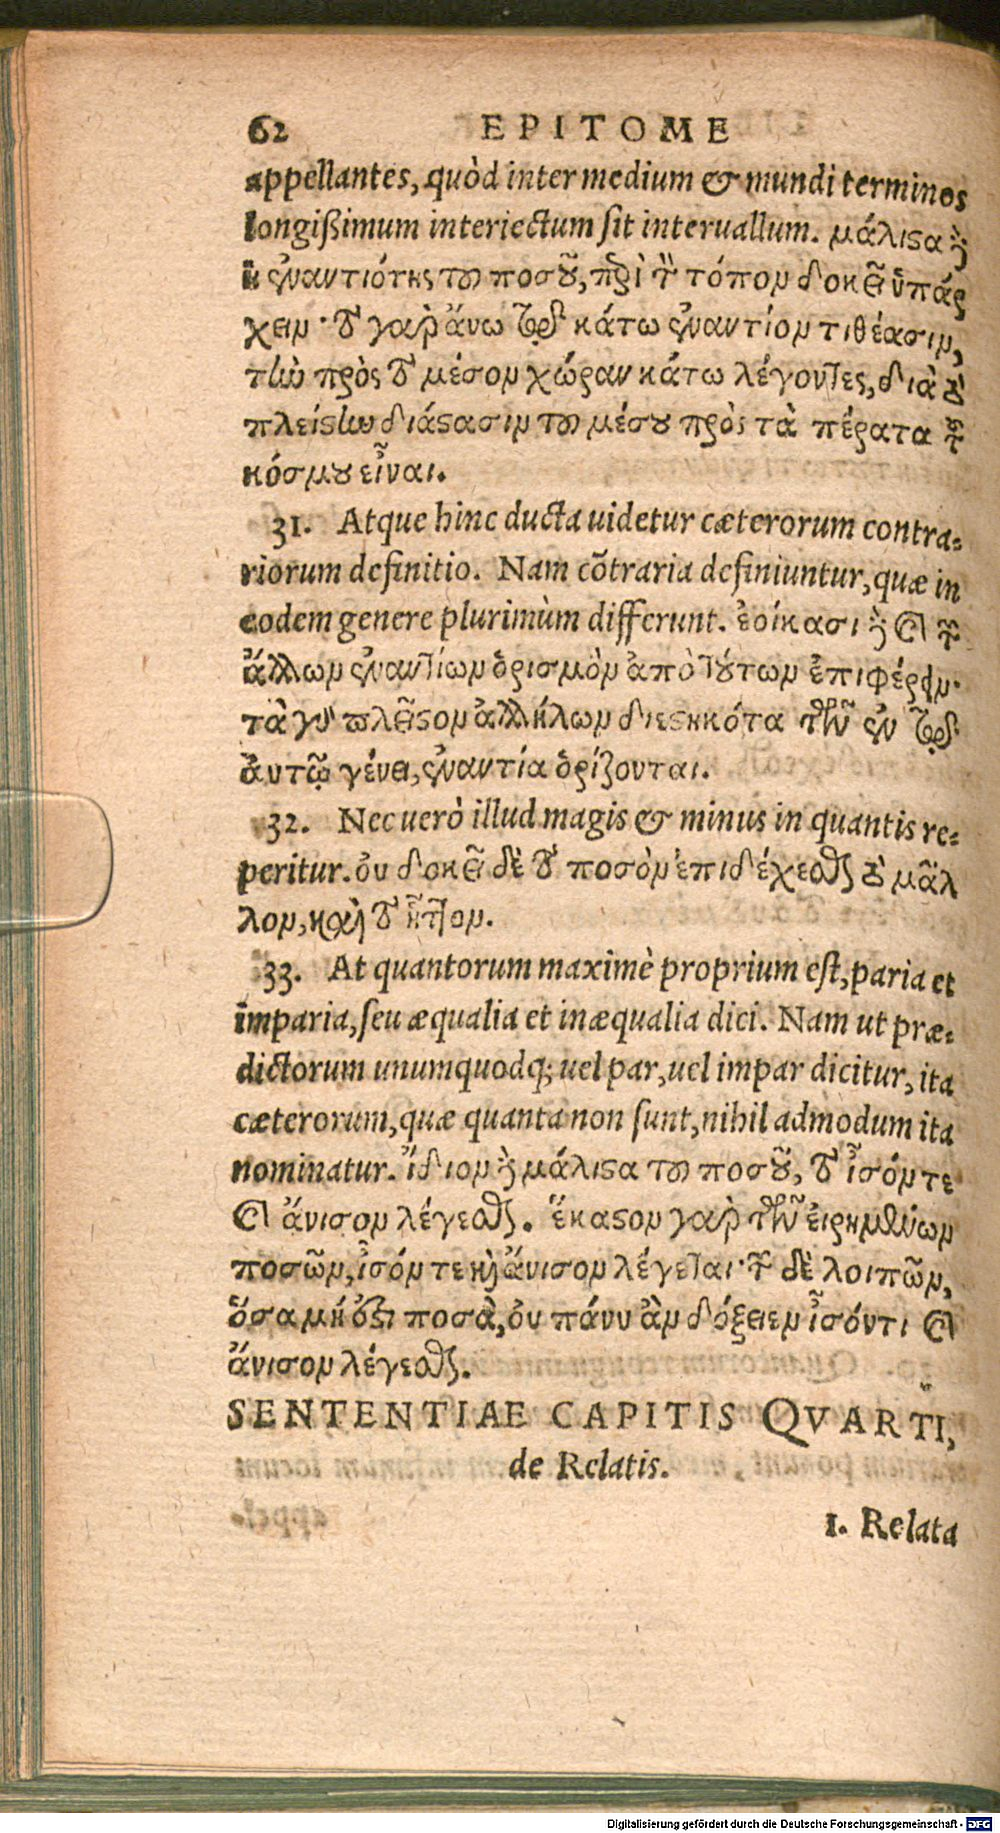 62 EPITOME
appellantes, quòd inter medium & mundi terminos
longißimum interiectum sit interuallum. μάλιϛα δὲ
ἡ ἐναντιότης τοῦ ποσοῦ, περὶ τὸν τόπον δοκεῖ ὑπάρ
χειν· τὸ γὰρ ἄνω τῷ κάτω ἐναντίον τιθέασιν,
τὴν πρὸς τὸ μέσον χώραν κάτω λέγοντες, διὰ τὸ
πλείϛην διάϛασιν τοῦ μέσου πρὸς τὰ πέρατα τοῦ
κόσμου εἶναι.
31. Atque hinc ducta uidetur cæterorum contra-
riorum definitio. Nam cõtraria definiuntur, quæ in
eodem genere plurimùm differunt. ἐοίκασι δὲ καὶ τὸν
ἄλλων ἐναντίων ὁρισμὸν ἀπὸ τούτων ἐπιφέρειν·
τὰ γὰρ πλεῖϛον ἀλλήλων διεϛηκότα τῶν ἐν τῷ
ἀυτῷ γένει, ἐναντία ὁρίζονται.
32. Nec uerò illud magis & minus in quantis re-
peritur. ὀυ δοκεῖ δὲ τὸ ποσὸν ἐπιδέχεσθαι τὸ μᾶλ
λον, καὶ τὸ ἧττον.
33. At quantorum maximè proprium est, paria et
imparia, seu æqualia et inæqualia dici. Nam ut præ-
dictorum unumquodq; uel par, uel impar dicitur, ita
cæterorum, quæ quanta non sunt, nihil admodum ita
nominatur. ἴδιον δὲ μάλιϛα τοῦ ποσοῦ, τὸ ἶσόν τε
καὶ ἄνισον λέγεσθαι. ἕκαϛον γὰρ τῶν ἐιρημένων
ποσῶν, ἶσόν τε καὶ ἄνισον λέγεται· τῶν δὲ λοιπῶν,
ὅσα μή ὅϛι ποσὰ, ὀυ πάνυ ἂν δόξειεν ἶσόντι καὶ
ἄνισον λέγεσθαι.
SENTENTIAE CAPITIS QVARTI,
de Relatis.
1. Relata
Digitalisierung gefördert durch die Deutsche Forschungsgemeinschaft - DFG